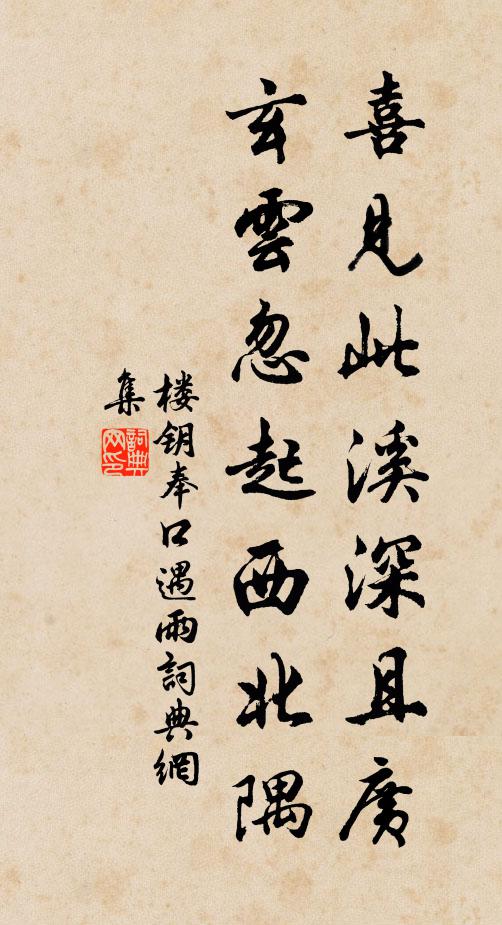 喜見此溪深且廣
玄雲忽起西北隅
楼钥奉口遇雨詞典網
集
詞典網印